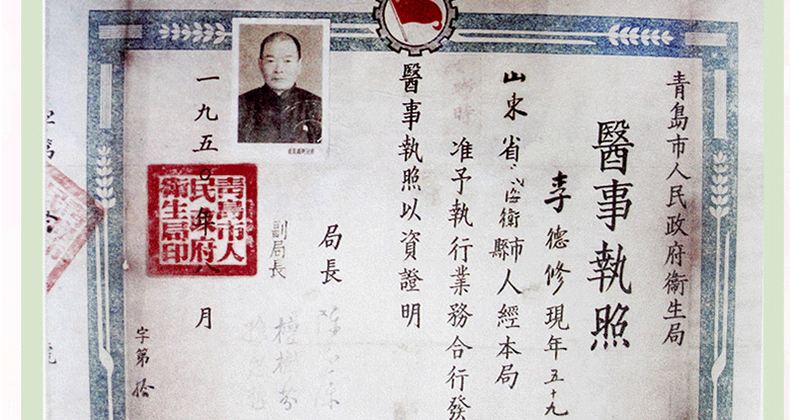 青島市人民政府衞生局
醫事執照
李德修現年五十九
山東省 海衞市縣人經本局
准予執行業務合行發
臨時
醫事執照以資證明
局長
副局長
一九五〇年八月
青島市人民政府衞生局印
字第拾
字第